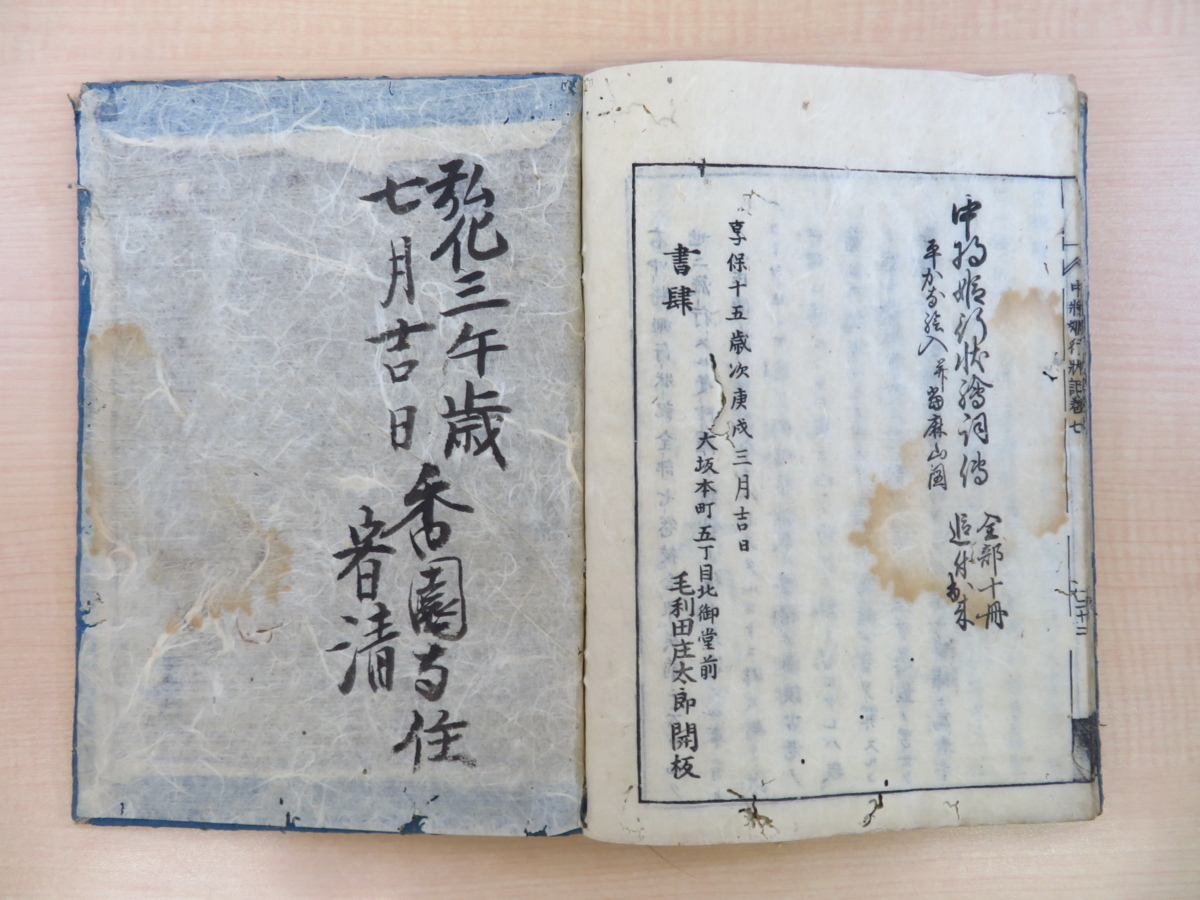 中将姫行状記巻七
二十二
中将姫行状繪詞傳
全部十冊
追付出来
平かな絵入 并當麻山圖
享保十五歳次庚戌三月吉日
大坂本町五丁目北御堂前
書肆
毛利田庄太郎開板
弘化三午歳
七月吉日
香園寺住
春清